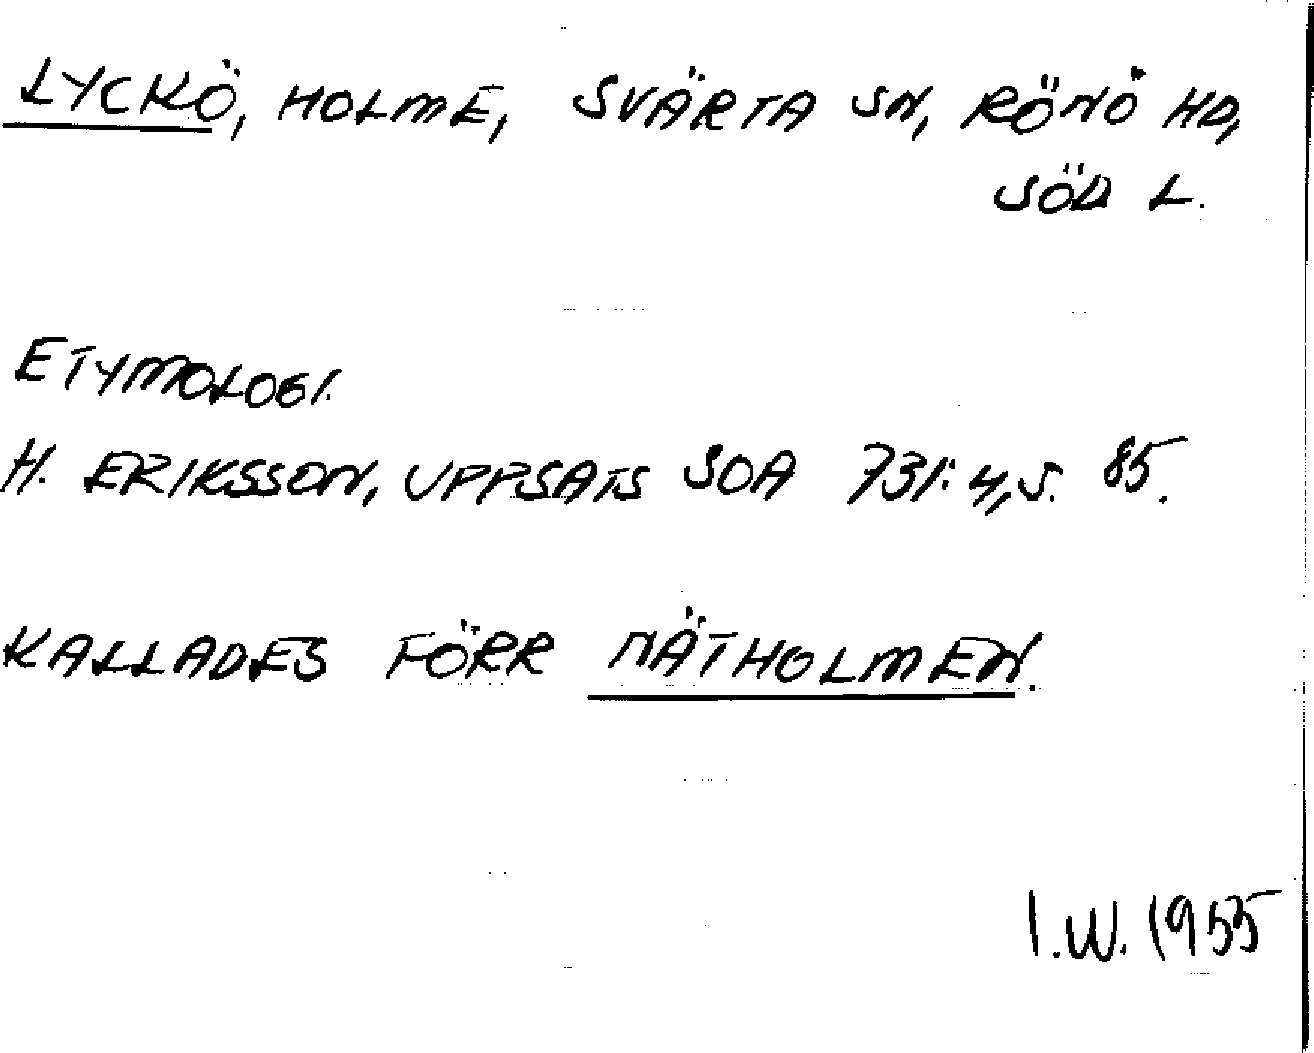 LYCKÖ, HOLME, SVÄRTA SN, RÖNÖ HD,
SÖD L.
ETYMOLOGI.
H. ERIKSSON, UPPSATS SOA 731:4, S. 85.
KALLADES FÖRR NÄTHOLMEN.
I.W. 1955